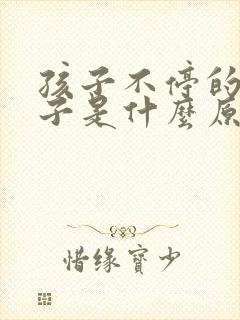 孩子不停的
子是什麼原
惜缘寶少